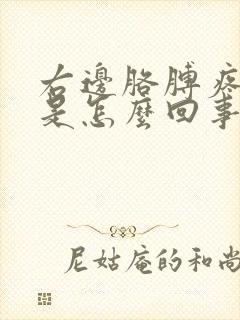 右邊胳膊疼
是怎麼回事
尼姑庵的和尚